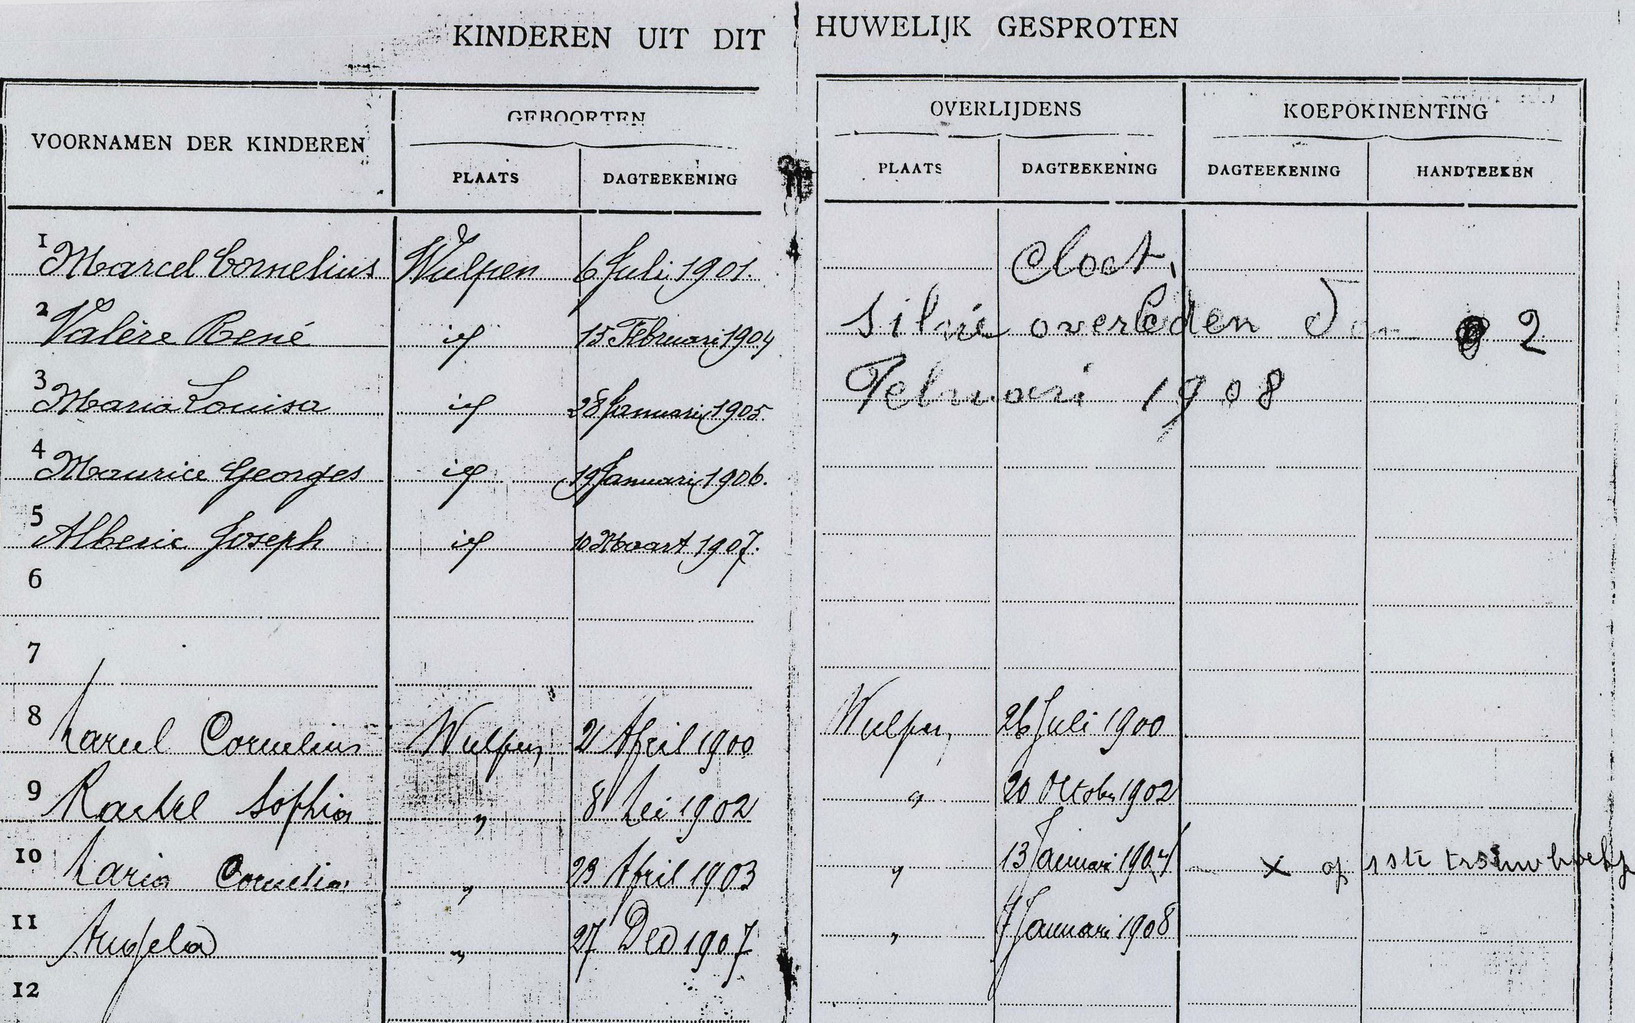 KINDEREN UIT DIT HUWELIJK GESPROTEN
VOORNAMEN DER KINDEREN GEBOORTEN OVERLIJDENS KOEPOKINENTING
PLAATS DAGTEEKENING PLAATS DAGTEEKENING DAGTEEKENING HANDTEEKEN
1 Marcel Cornelius Wulpen 6 Juli 1901. Cloet,
2 Valère René id 15 Februari 1904 Silvie overleden Den 2
3 Maria Louisa id 28 Januari 1905. Februari 1908
4 Maurice Georges id 19 Januari 1906.
5 Alberic Joseph id 10 Maart 1907.
6
7
8 Marcel Cornelius Wulpen 21 April 1900 Wulpen 26 Juli 1900
9 Rachel Sophia " 8 Mei 1902 " 20 October 1902
10 Maria Cornelia " 23 April 1903 " 13 Januari 1904 x op 1ste trouwboekje
11 Angela " 27 Dec 1907 " 7 Januari 1908
12